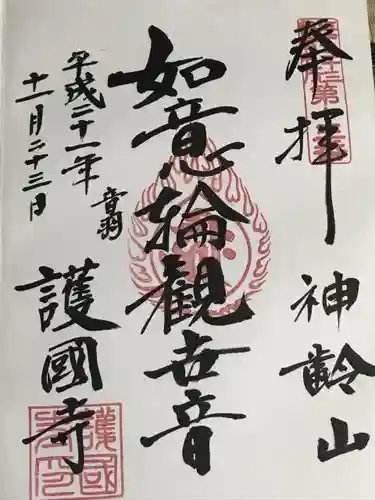 奉拝
神齢山
如意輪観世音
平成二十一年
十一月二十三日
音羽
護國寺
護國